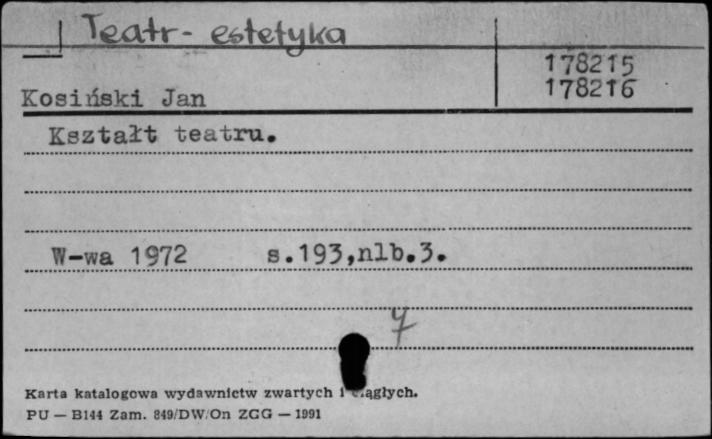 Teatr - estetyka
178215
178216
Kosiński Jan
Kształt teatru.
W-wa 1972 s.193,nlb.3.
Karta katalogowa wydawnictw zwartych i ciągłych.
PU — B144 Zam. 849/DW/On ZGG — 1991